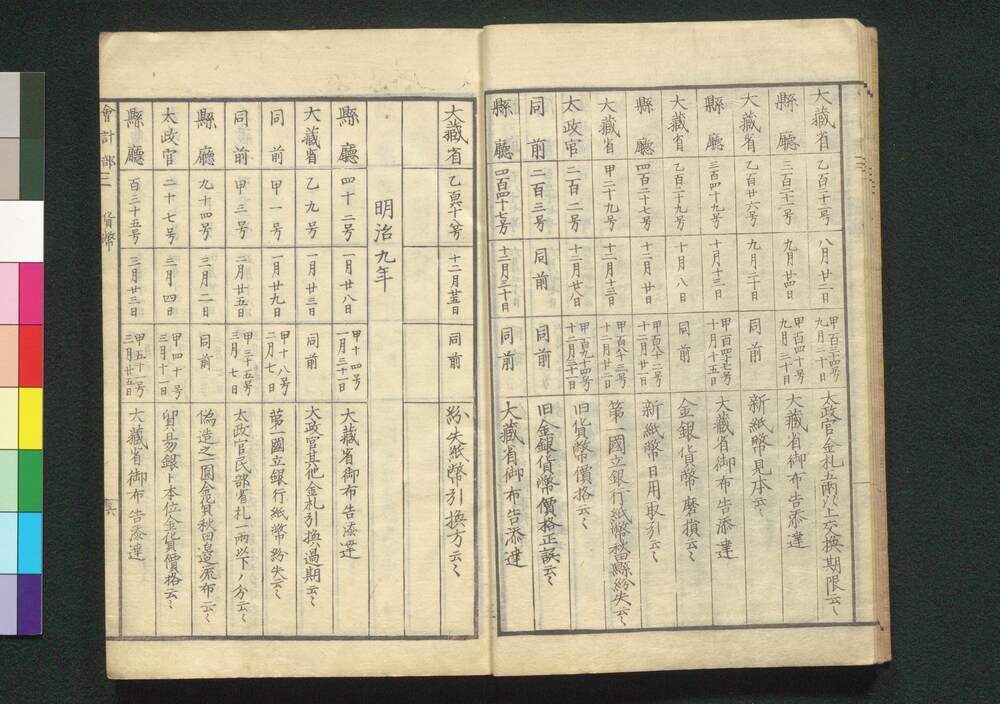 大藏省 乙百二十一号 八月廿二日 甲百三十四号 九月二十日 太政官金札五兩以上交換期限云〻
縣廳 三百二十一号 九月廿四日 甲百四十号 九月三十日 大藏省御布告添達
大藏省 乙百廿六号 九月二十日 同前 新紙幣見本云〻
縣廳 三百四十九号 十月十三日 甲百四十七号 十月十五日 大藏省御布告添達
大藏省 乙百二十九号 十月八日 同前 金銀貨幣磨損云〻
縣廳 四百二十七号 十二月廿日 甲百八十二号 十二月廿日 新紙幣日用取引云〻
大藏省 甲二十九号 十二月十三日 甲百八十三号 十二月廿二日 第一國立銀行紙幣秋田縣紛失云〻
太政官 二百二号 十二月廿八日 甲百九十四号 十二月三十一日 旧貨幣價格云〻
同前 二百三号 同前 同前 旧金銀貨幣價格正誤云〻
縣廳 四百四十七号 十二月三十日 同前 大藏省御布告添達
大藏省 乙百十八号 十二月廿五日 同前 紛失紙幣引換方云〻
明治九年
縣廳 四十二号 一月廿八日 甲十四号 一月三十一日 大藏省御布告添達
大藏省 乙九号 一月廿三日 同前 太政官其他金札引換過期云〻
同前 甲一号 一月廿九日 甲十八号 二月七日 第一國立銀行紙幣紛失云〻
同前 甲三号 二月廿五日 甲三十五号 三月七日 太政官民部省札一兩以下ノ分云〻
縣廳 九十四号 三月二日 同前 偽造之二圓金貨秋田邊流布云〻
太政官 二十七号 三月四日 甲四十号 三月十一日 貿易銀ト本位金貨價格云〻
縣廳 百三十五号 三月廿三日 甲五十一号 三月廿五日 大藏省御布告添達
會計部三 貨幣